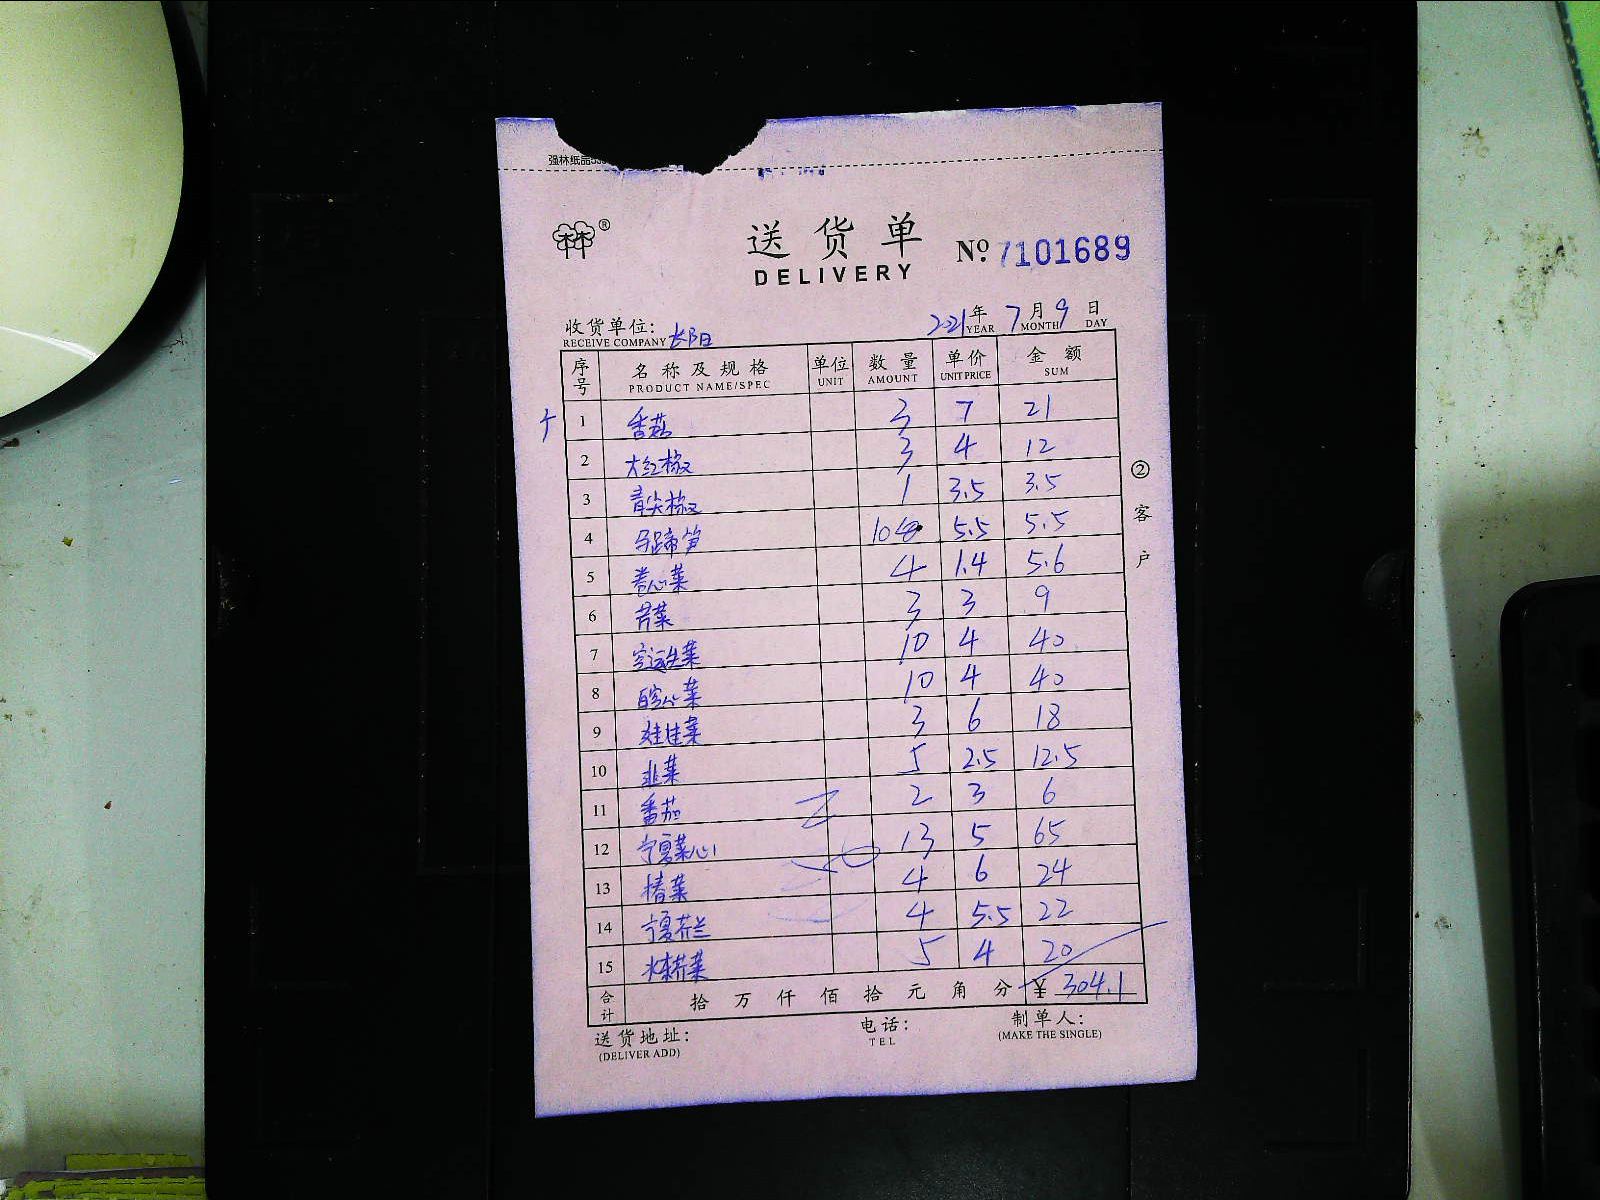 强林纸品
送货单
DELIVERY
Nº 7101689
收货单位: 长阳 2021年 7月 9日
RECEIVE COMPANY YEAR MONTH DAY
序号 名称及规格 单位 数量 单价 金额
PRODUCT NAME/SPEC UNIT AMOUNT UNIT PRICE SUM
1 香菇 3 7 21
2 大红椒 3 4 12
3 青尖椒 1 3.5 3.5
4 马蹄笋 10 5.5 5.5
5 卷心菜 4 1.4 5.6
6 苦菜 3 3 9
7 空运生菜 10 4 40
8 菜 10 4 40
9 娃娃菜 3 6 18
10 韭菜 5 2.5 12.5
11 番茄 2 3 6
12 宁夏菜心 13 5 65
13 椿菜 4 6 24
14 宁夏芥兰 4 5.5 22
15 芥菜 5 4 20
合计 拾万仟佰拾元角分 ¥ 304.1
② 客户
送货地址: 电话: 制单人:
(DELIVER ADD) TEL (MAKE THE SINGLE)